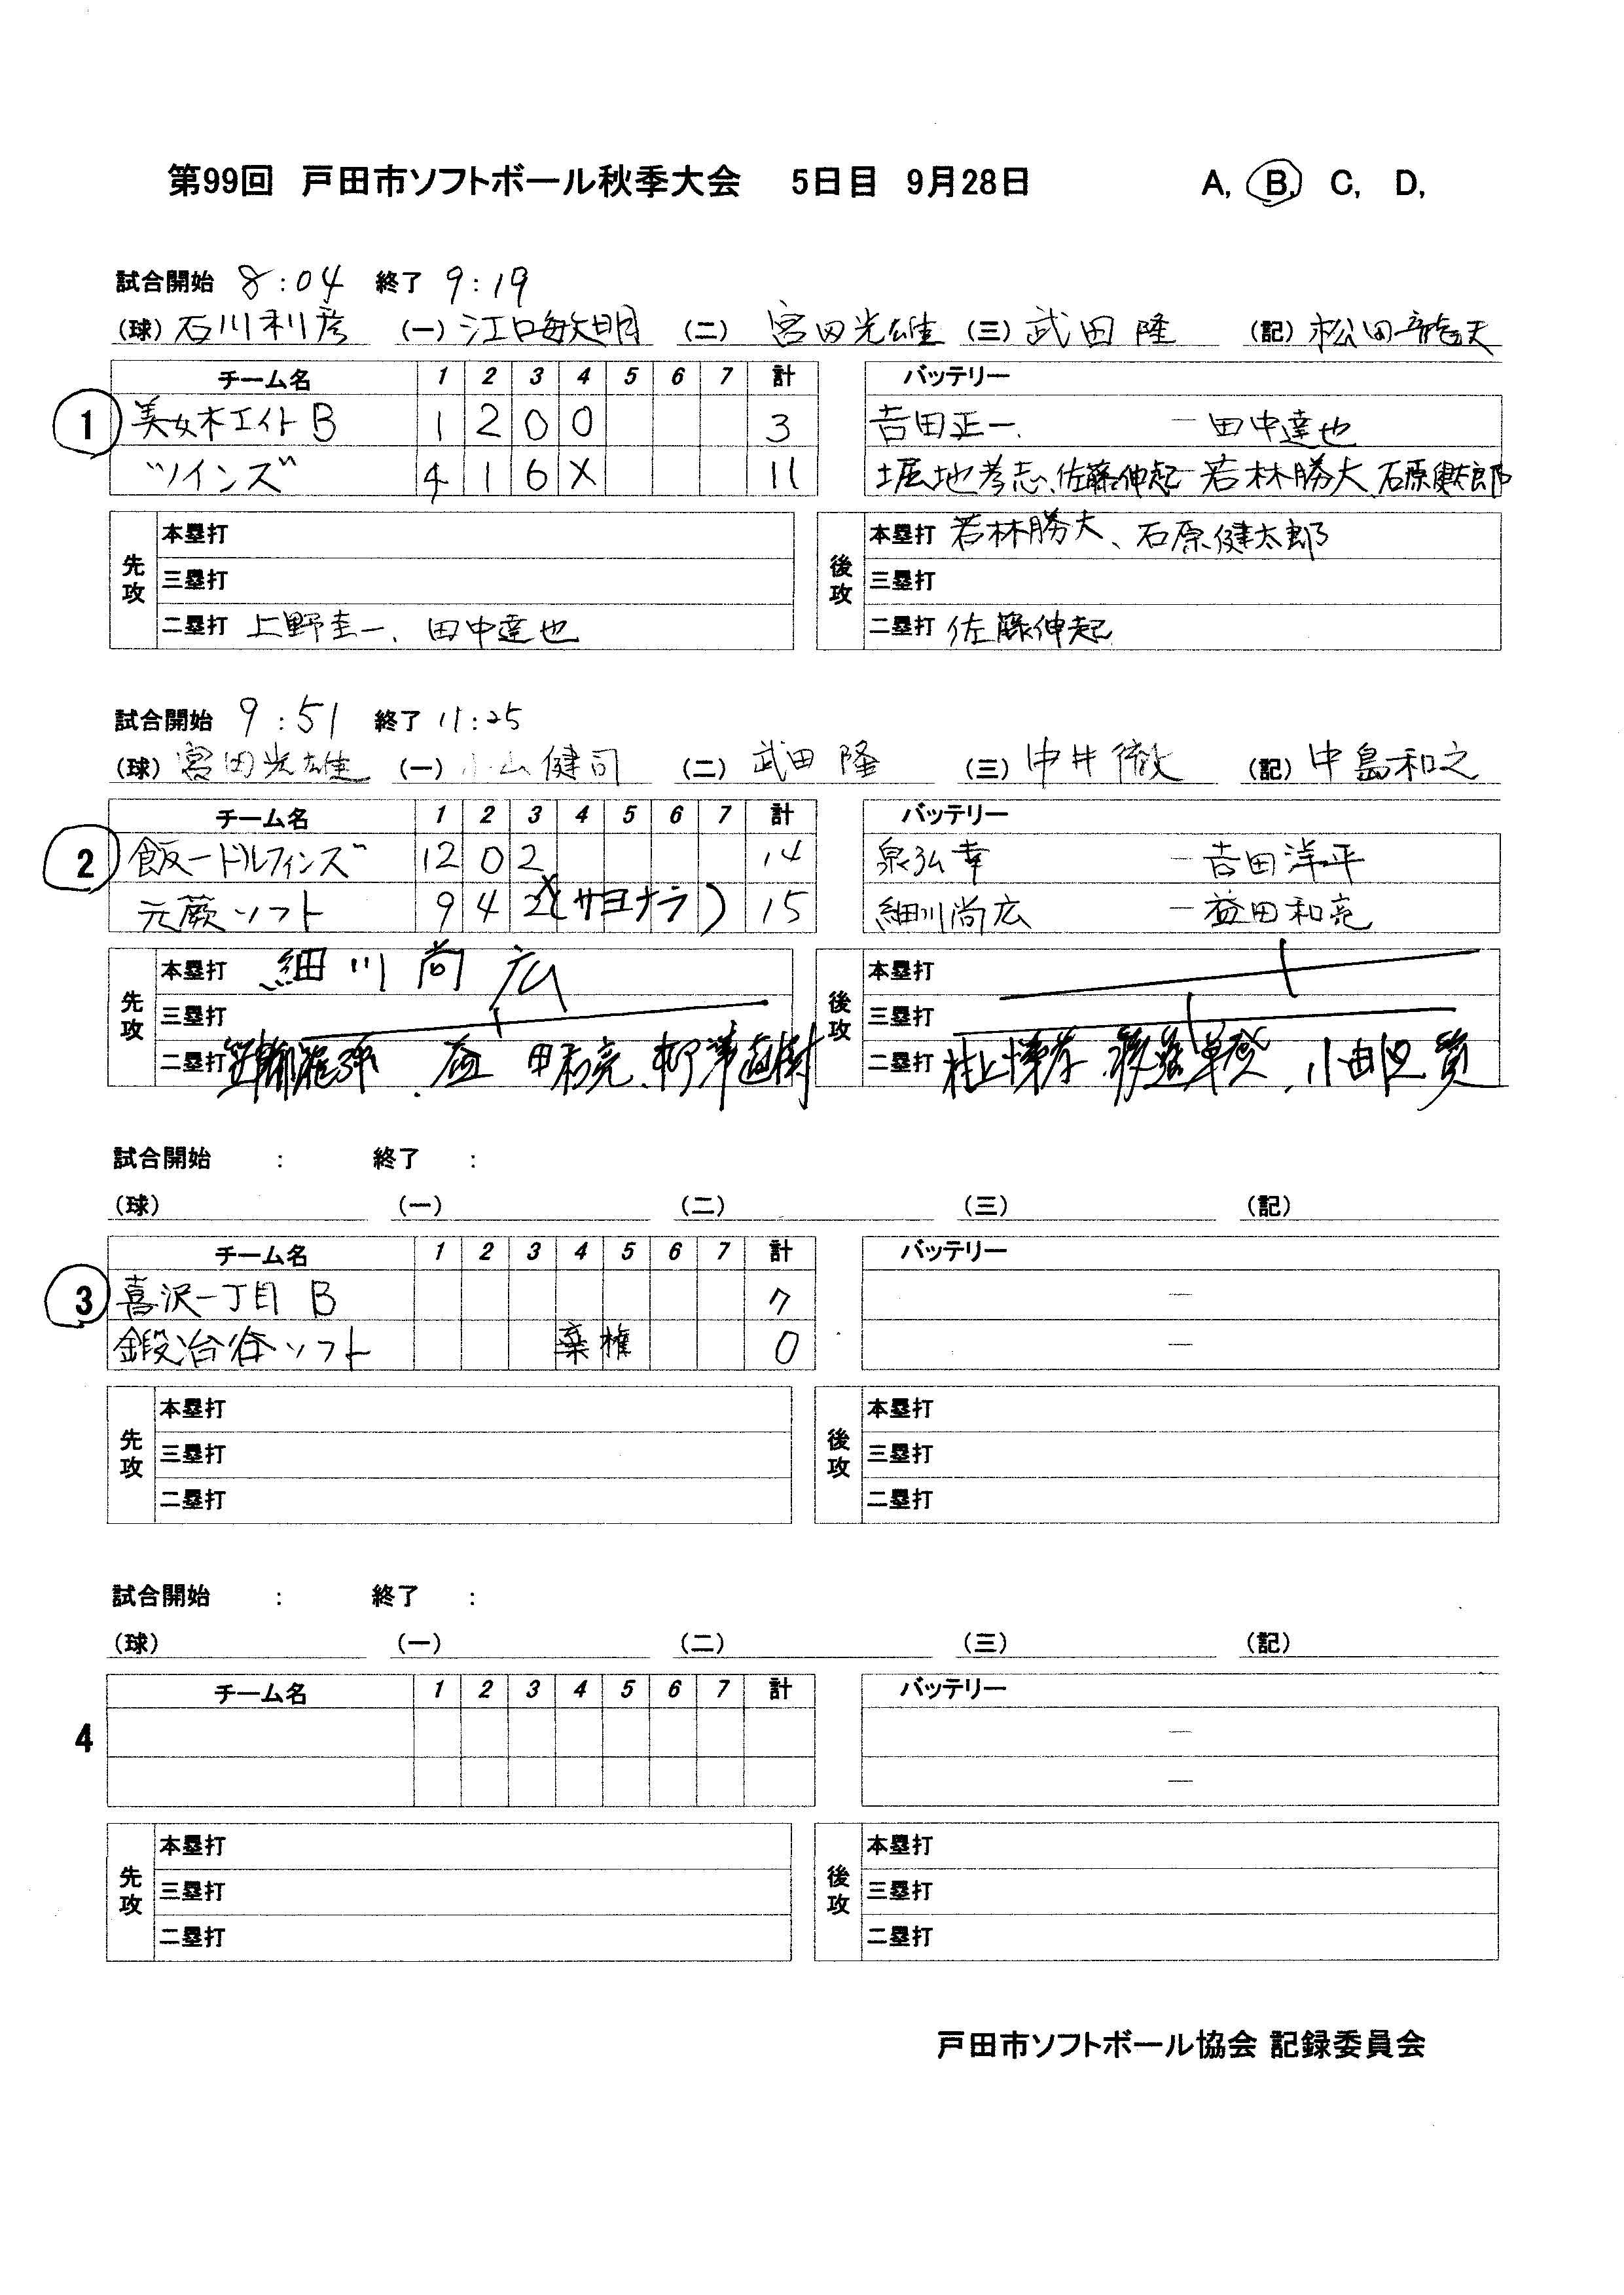 第99回 戸田市ソフトボール秋季大会 5日目 9月28日 A, B, C, D,
試合開始 8:04 終了 9:19
(球) 石川利彦 (一) 江口敏明 (二) 宮田光雄 (三) 武田隆 (記) 松田龍天
チーム名 1 2 3 4 5 6 7 計 バッテリー
1 美女木エイトB 1 2 0 0 3 吉田正一、 ー 田中達也
ツインズ 4 1 6 X 11 堀地孝志、佐藤伸起 ー 若林勝大、石原健太郎
先攻 後攻
本塁打 本塁打 若林勝大、石原健太郎
三塁打 三塁打
二塁打 上野圭一、田中達也 二塁打 佐藤伸起
試合開始 9:51 終了 11:25
(球) 宮田光雄 (一) 小山健司 (二) 武田隆 (三) 中井徹 (記) 中島和之
チーム名 1 2 3 4 5 6 7 計 バッテリー
2 飯一ドルフィンズ 12 0 2 14 泉弘幸 ー 吉田洋平
元蕨ソフト 9 4 2X(サヨナラ) 15 細川尚広 ー 益田和亮
先攻 後攻
本塁打 細川尚広 本塁打
三塁打 三塁打
二塁打 益田和亮、柳澤直樹 二塁打 村上博孝
試合開始 : 終了 :
(球) (一) (二) (三) (記)
チーム名 1 2 3 4 5 6 7 計 バッテリー
3 喜沢一丁目 B 7 ー
鍛冶谷ソフト 棄権 0 ー
先攻 後攻
本塁打 本塁打
三塁打 三塁打
二塁打 二塁打
試合開始 : 終了 :
(球) (一) (二) (三) (記)
チーム名 1 2 3 4 5 6 7 計 バッテリー
4 ー
ー
先攻 後攻
本塁打 本塁打
三塁打 三塁打
二塁打 二塁打
戸田市ソフトボール協会 記録委員会